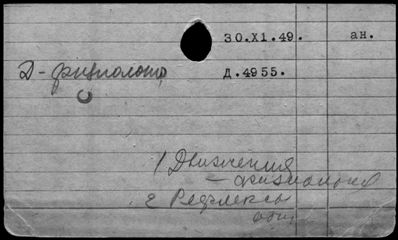 30.XI.49. ан.
Д-физиолог Д.4955.
С
1 Движения
– физиология
2 Рефлексы